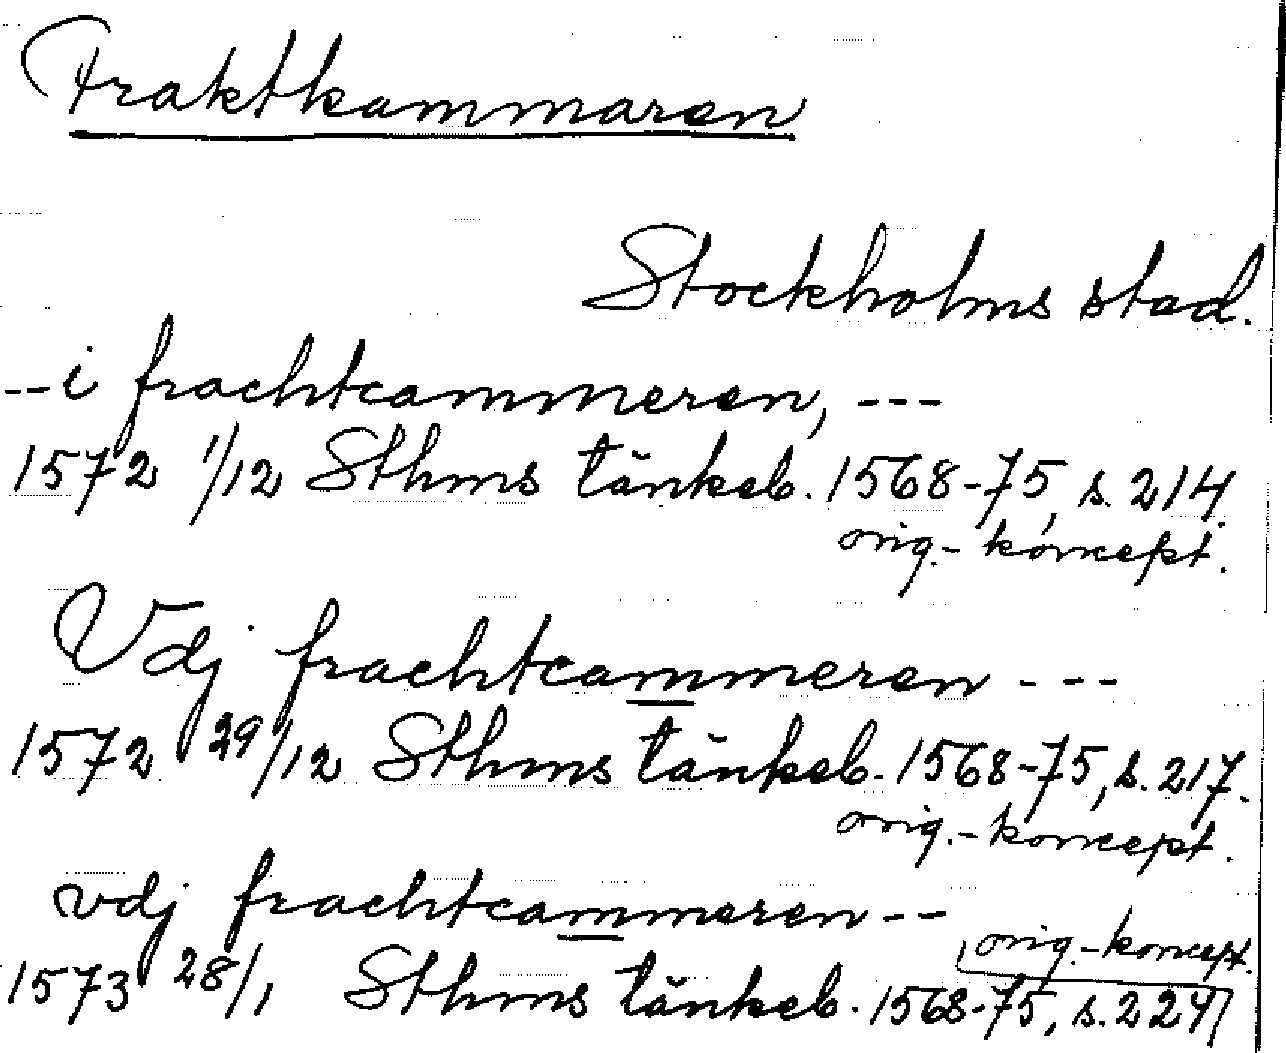 Fraktkammaren
Stockholms stad.
--i frachtcammeren, ---
1572 1/12 Sthms tänkeb. 1568-75, s. 214.
orig.- koncept.
Vdj frachtcammeren ---
1572 29/12 Sthms tänkeb. 1568-75, s. 217.
orig.- koncept.
vdj frachtcammeren --
orig.- koncept.
1573 28/1 Sthms tänkeb. 1568-75, s. 224